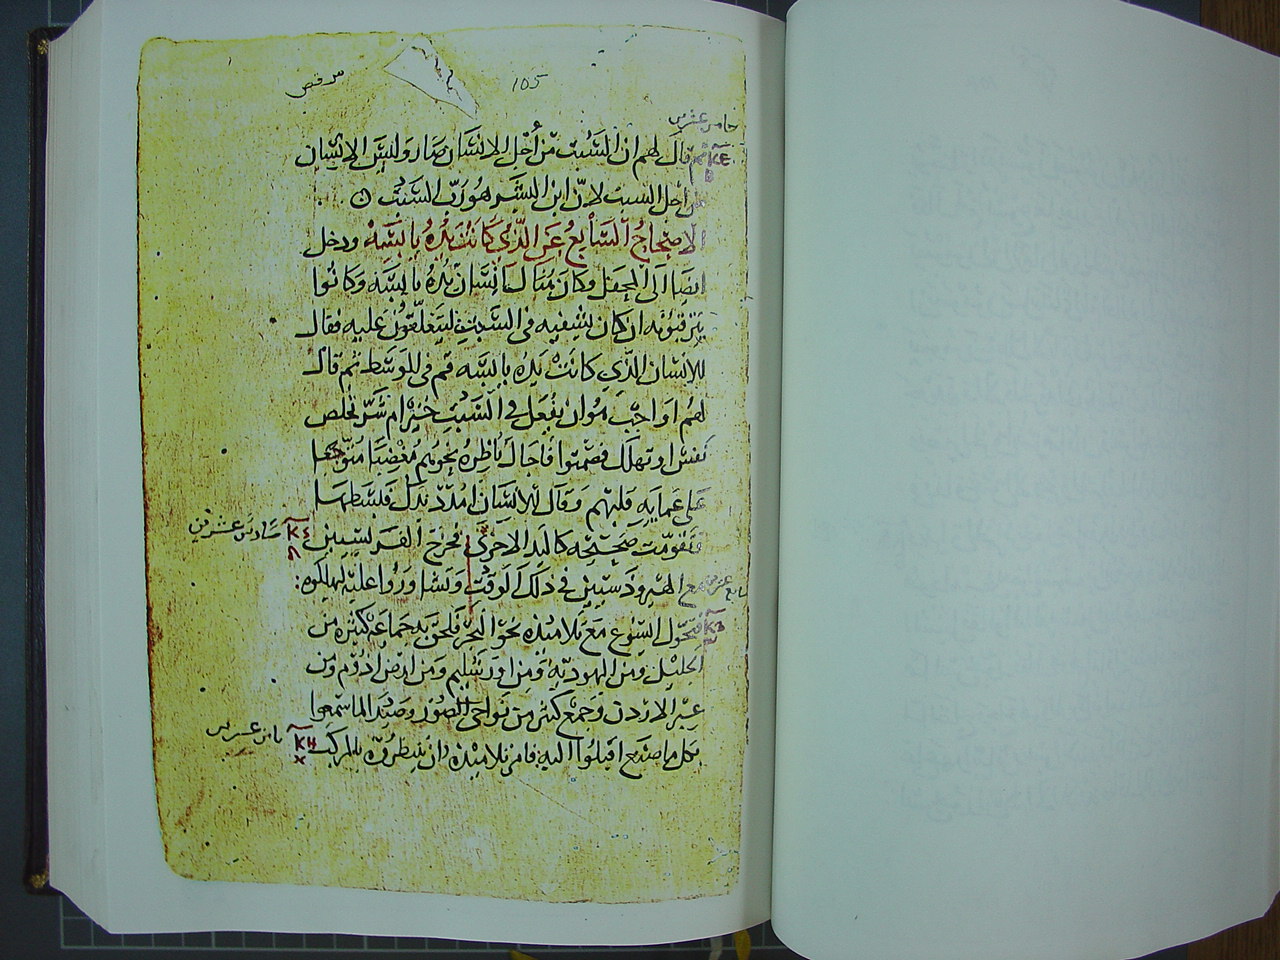 مرقص
105
خامس عشرين
ΚΕ
ثم قال لهم ان السَّبت من أجل الانسَان صَار وليسَ الانسان
من اجل السبت لانّ ابن البشر هُو ربّ السَّبت
الاصحاحُ السَّابعُ عَن الذّي كانت يَدُهُ يابسَه ودخل
ايضا الى المجفل وكان هُناك انسَان يدُهُ يابسَه وكانُوا
يترقبُونه ان كان يشفيه في السَّبت ليتعلّقون عليه فقال
للانسان الذّي كانتْ يَدهُ يابسَه قم في الوسَط ثم قال
لهُم اواجب هُو ان يفعَل في السَّبتِ خير ام شرّ تخلص
نفس او تهلك فصَمتوا فاجال ناظرهُ نحوهُم مُغضِبًا مُتوجّعا
على عمايه قلبهم وقال للانسَان امدُدْ يدَك فبسَطها
فتقومّت صَحيحه كاليد الاخرَى فخرَج الفريسيين
ΚϚ سَادس عشرين
مع الهيرودسيين في ذلك الوقت وتشاورُوا عليه ليهلكوه:
سابع عشرين
ΚΖ
فتحّول اليسُوع مَع تلاميذه نحوَ البحر فلحق به جماعَه كثيره من
الجليل ومن اليهوديّه ومن اورشليم ومن ارض ادُوم ومن
عبر الاردن وجمع كثير من نواحي الصُور وصَيدا لما سمعوا
بكل ما صنع اقبلوا اليه فامر تلاميذه ان ينظروه بالمركب
ΚΗ ثامن عشرين